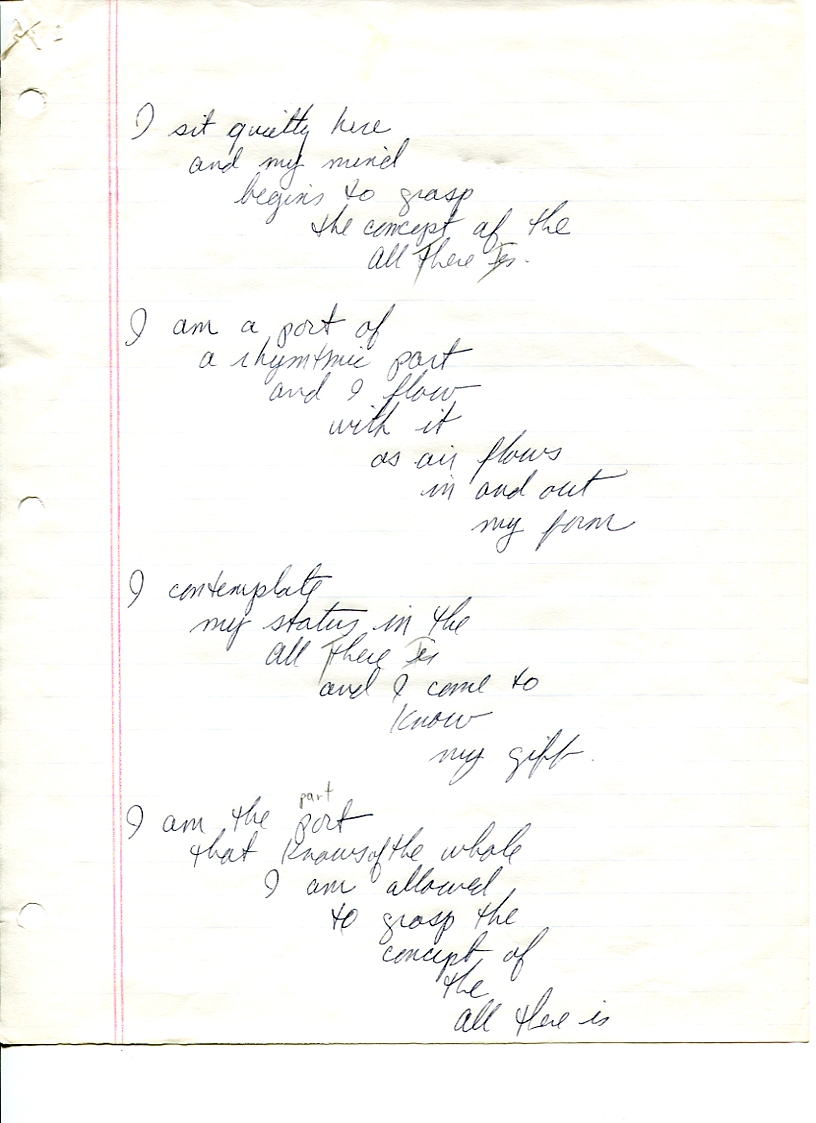 I sit quietly here
and my mind
begins to grasp
the concept of the
All There Is.
I am a part of
a rhymtmic part
and I flow
with it
as air flows
in and out
my form
I contemplate
my status in the
All There Is
and I come to
know
my gift.
part
I am the part
that knows of the whole
I am allowed
to grasp the
concept of
the
all there is